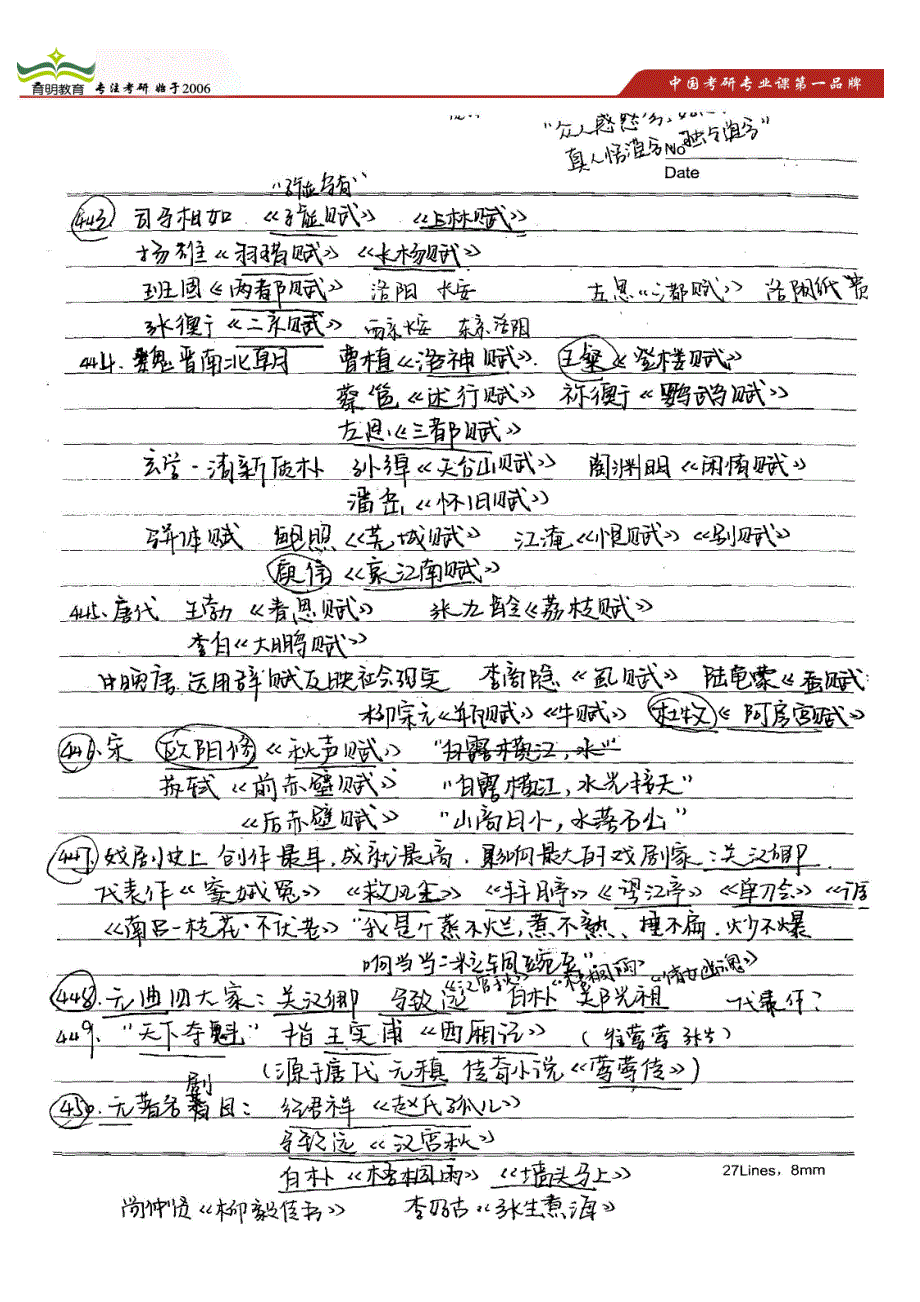 育明教育 专注考研 始于2006
中国考研专业课第一品牌
"众人惑惑兮
真人恬漠兮 独与道兮"
No
Date
"子虚乌有"
443. 司马相如 《子虚赋》 《上林赋》
扬雄《羽猎赋》 《长杨赋》
班固《两都赋》 洛阳 长安 左思《三都赋》 洛阳纸贵
张衡《二京赋》 西京长安 东京洛阳
444. 魏晋南北朝 曹植《洛神赋》. 王粲《登楼赋》
蔡邕《述行赋》 祢衡《鹦鹉赋》
左思《三都赋》
玄学-清新质朴 孙绰《天台山赋》 陶渊明《闲情赋》
潘岳《怀旧赋》
骈体赋 鲍照《芜城赋》 江淹《恨赋》《别赋》
庾信《哀江南赋》
445. 唐代 王勃《春思赋》 张九龄《荔枝赋》
李白《大鹏赋》
中晚唐 运用辞赋反映社会现实 李商隐《虱赋》 陆龟蒙《蚕赋
柳宗元 《牛赋》 杜牧《阿房宫赋》
446. 宋 欧阳修《秋声赋》 "白露横江，水"
苏轼《前赤壁赋》 "白露横江，水光接天"
《后赤壁赋》 "山高月小，水落石出"
447. 戏剧史上 创作最早，成就最高. 影响最大的戏剧家：关汉卿.
代表作《窦娥冤》 《救风尘》 《拜月亭》《望江亭》《单刀会》《调
《南吕一枝花·不伏老》"我是个蒸不烂，煮不熟、捶不扁. 炒不爆
响当当一粒铜豌豆"
《汉宫秋》 《梧桐雨》 《倩女幽魂》
448. 元曲四大家：关汉卿 马致远 白朴 郑光祖 代表作？
449. "天下夺魁" 指王实甫《西厢记》 (崔莺莺 张生)
(源于唐代 元稹 传奇小说《莺莺传》)
450. 元著名剧目： 纪君祥 《赵氏孤儿》
马致远 《汉宫秋》
白朴《梧桐雨》 《墙头马上》
27Lines，8mm
尚仲贤《柳毅传书》 李好古《张生煮海》